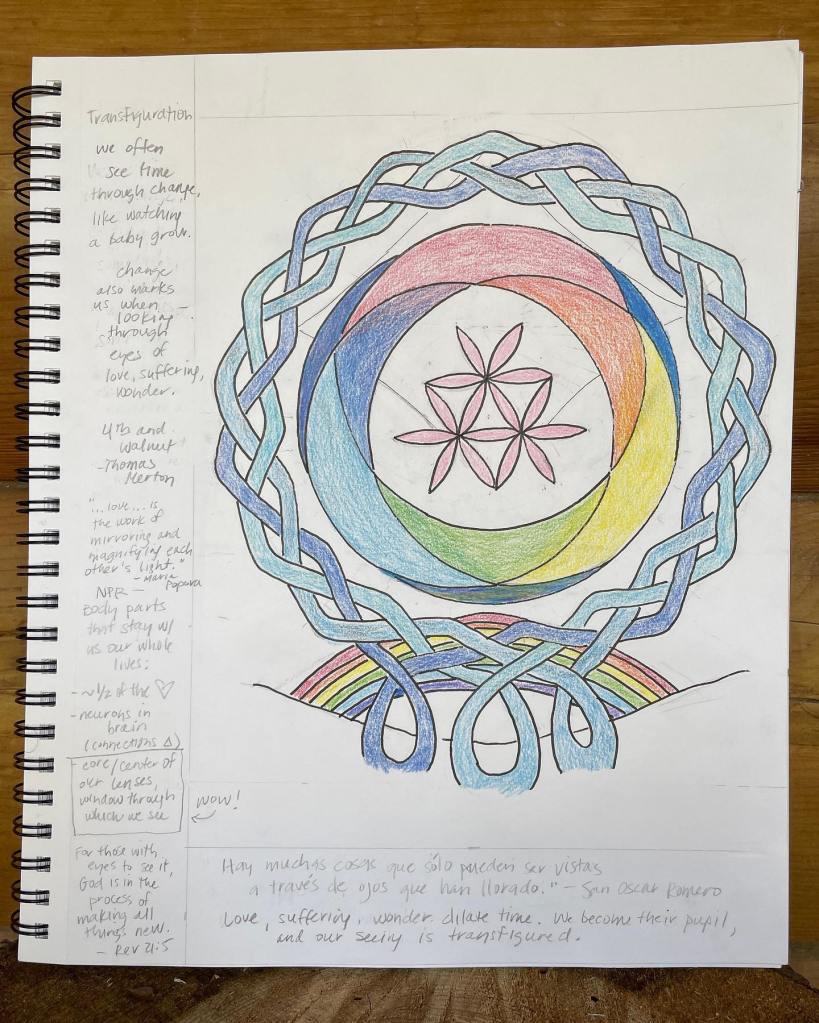 Transfiguration
we often
see time
through change,
like watching
a baby grow.
change
also marks
us when —
looking
through
eyes of
love, suffering,
wonder.
4th and
Walnut
-Thomas
Merton
"...love... is
the work of
mirroring and
magnifying each
other's light."
- Maria
Popova
NPR —
Body parts
that stay w/
us our whole
lives:
- ~1/2 of the ♡
- neurons in
brain
(connections Δ)
- core/center of
our lenses,
window through
which we see
wow!
For those with
eyes to see it,
God is in the
process of
making all
things new.
- Rev 21:5
Hay muchas cosas que sólo pueden ser vistas
a través de ojos que han llorado." - San Oscar Romero
Love, suffering, wonder dilate time. We become their pupil,
and our seeing is transfigured.